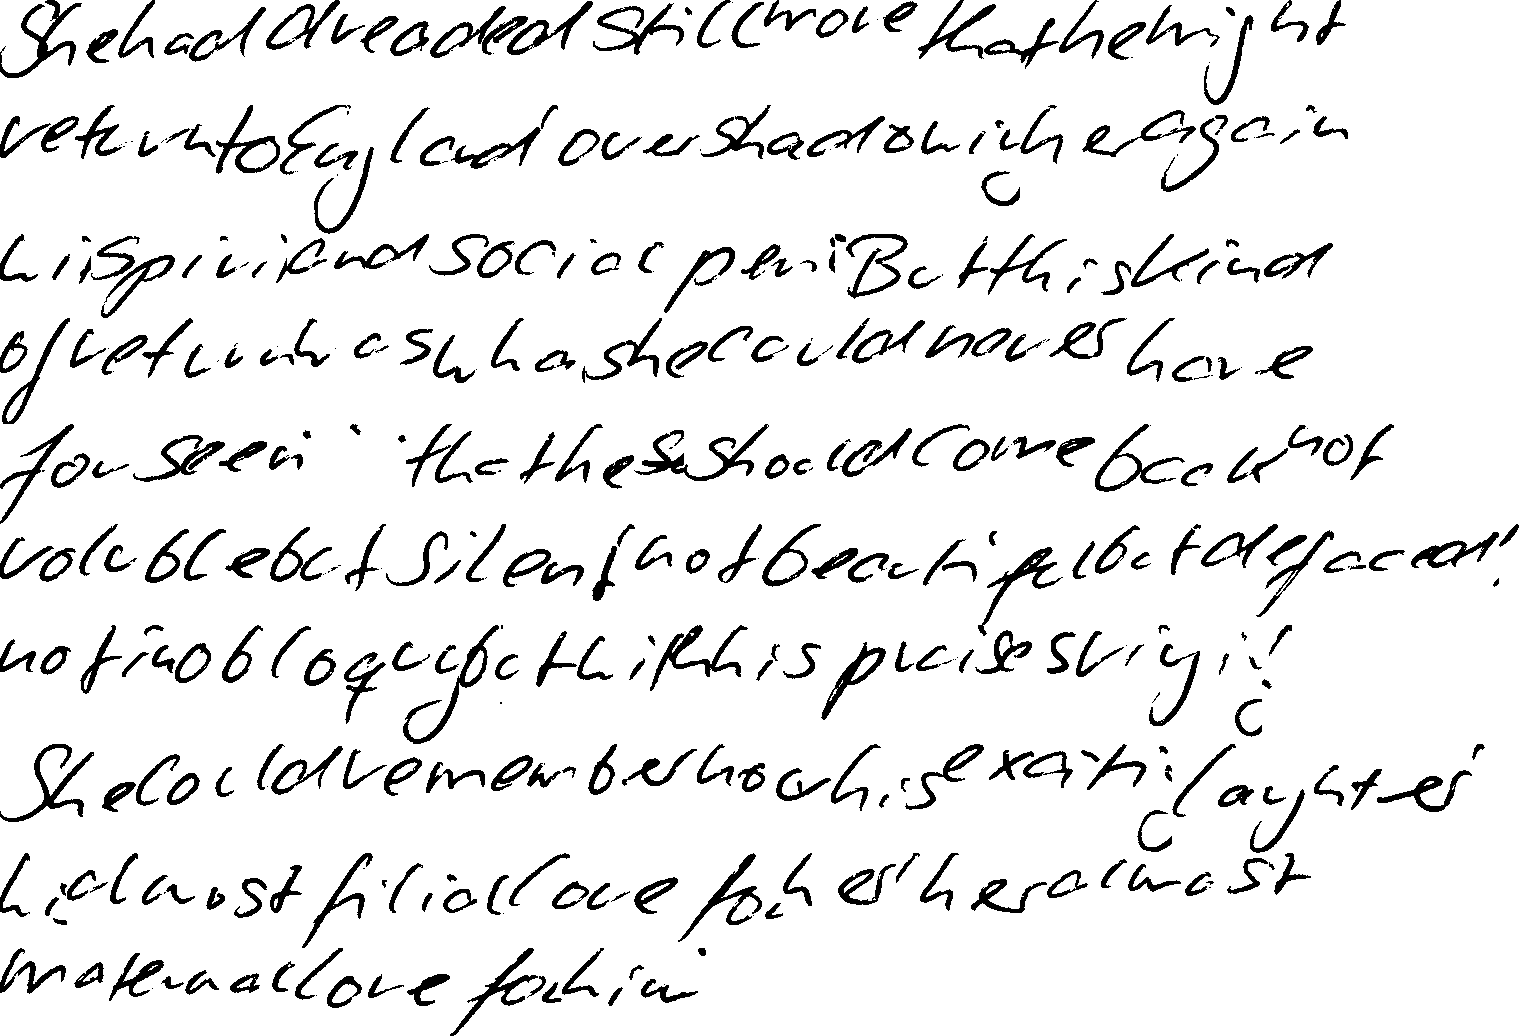 She had dreaded still more that he might
return to England overshadowing her again
in spirit and social peril But this kind
of return was what she could never have
forseen that he should come back not
voluble but silent not beautiful but defaced!
not in obloquy but with his praises ringing!
She could remember now his exciting laughter
his almost filial love for her her almost
maternal love for him